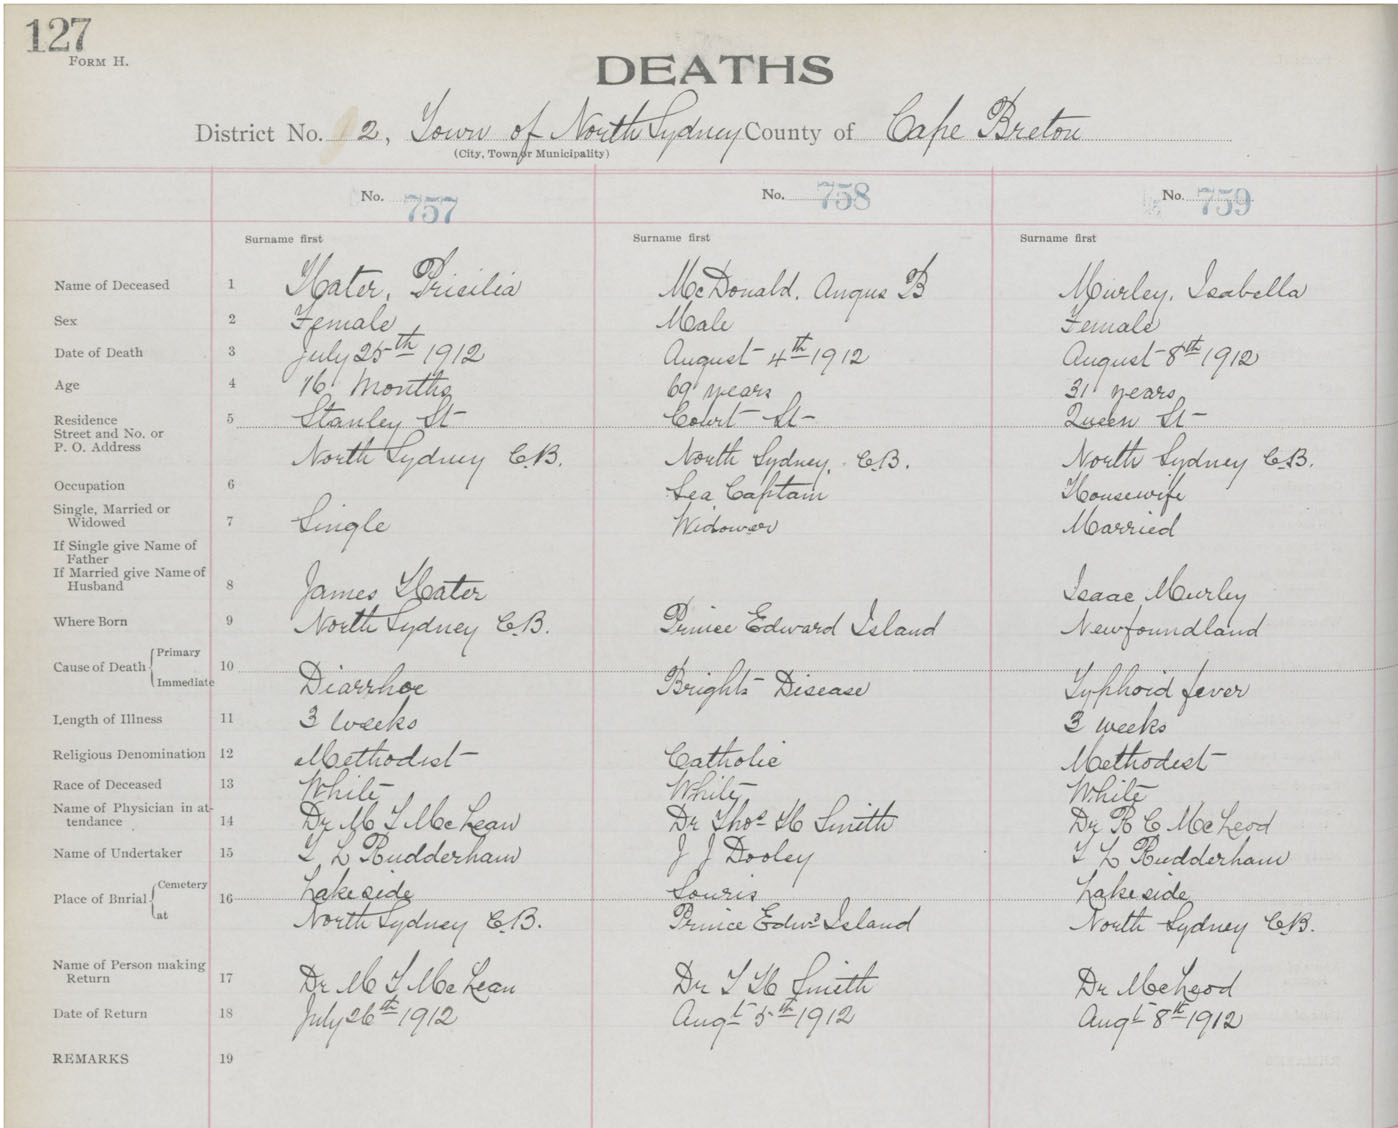 127
FORM H.
DEATHS
District No. 2, Town of North Sydney County of Cape Breton
(City, Town or Municipality)
No. 757 No. 758 No. 759
Surname first Surname first Surname first
Name of Deceased 1 Hater, Pricilia McDonald, Angus B Murley, Isabella
Sex 2 Female Male Female
Date of Death 3 July 25th 1912 August 4th 1912 August 8th 1912
Age 4 16 months 69 years 31 years
Residence 5 Stanley St Court St Queen St
Street and No. or
P. O. Address North Sydney C.B. North Sydney, C.B. North Sydney C.B.
Occupation 6 Sea Captain Housewife
Single, Married or
Widowed 7 Single Widower Married
If Single give Name of
Father
If Married give Name of
Husband 8 James Hater Isaac Murley
Where Born 9 North Sydney C.B. Prince Edward Island Newfoundland
Primary
Cause of Death 10
Immediate Diarrhoe Brights Disease Typhoid fever
Length of Illness 11 3 weeks 3 weeks
Religious Denomination 12 Methodist Catholic Methodist
Race of Deceased 13 White White White
Name of Physician in at-
tendance 14 Dr M T McLean Dr Thos H Smith Dr R C McLeod
Name of Undertaker 15 T L Rudderham J J Dooley T L Rudderham
Cemetery
Place of Burial 16 Lakeside Souris Lakeside
at North Sydney C.B. Prince Edwd Island North Sydney C.B.
Name of Person making
Return 17 Dr M T McLean Dr T H Smith Dr McLeod
Date of Return 18 July 26th 1912 Augt 5th 1912 Augt 8th 1912
REMARKS 19